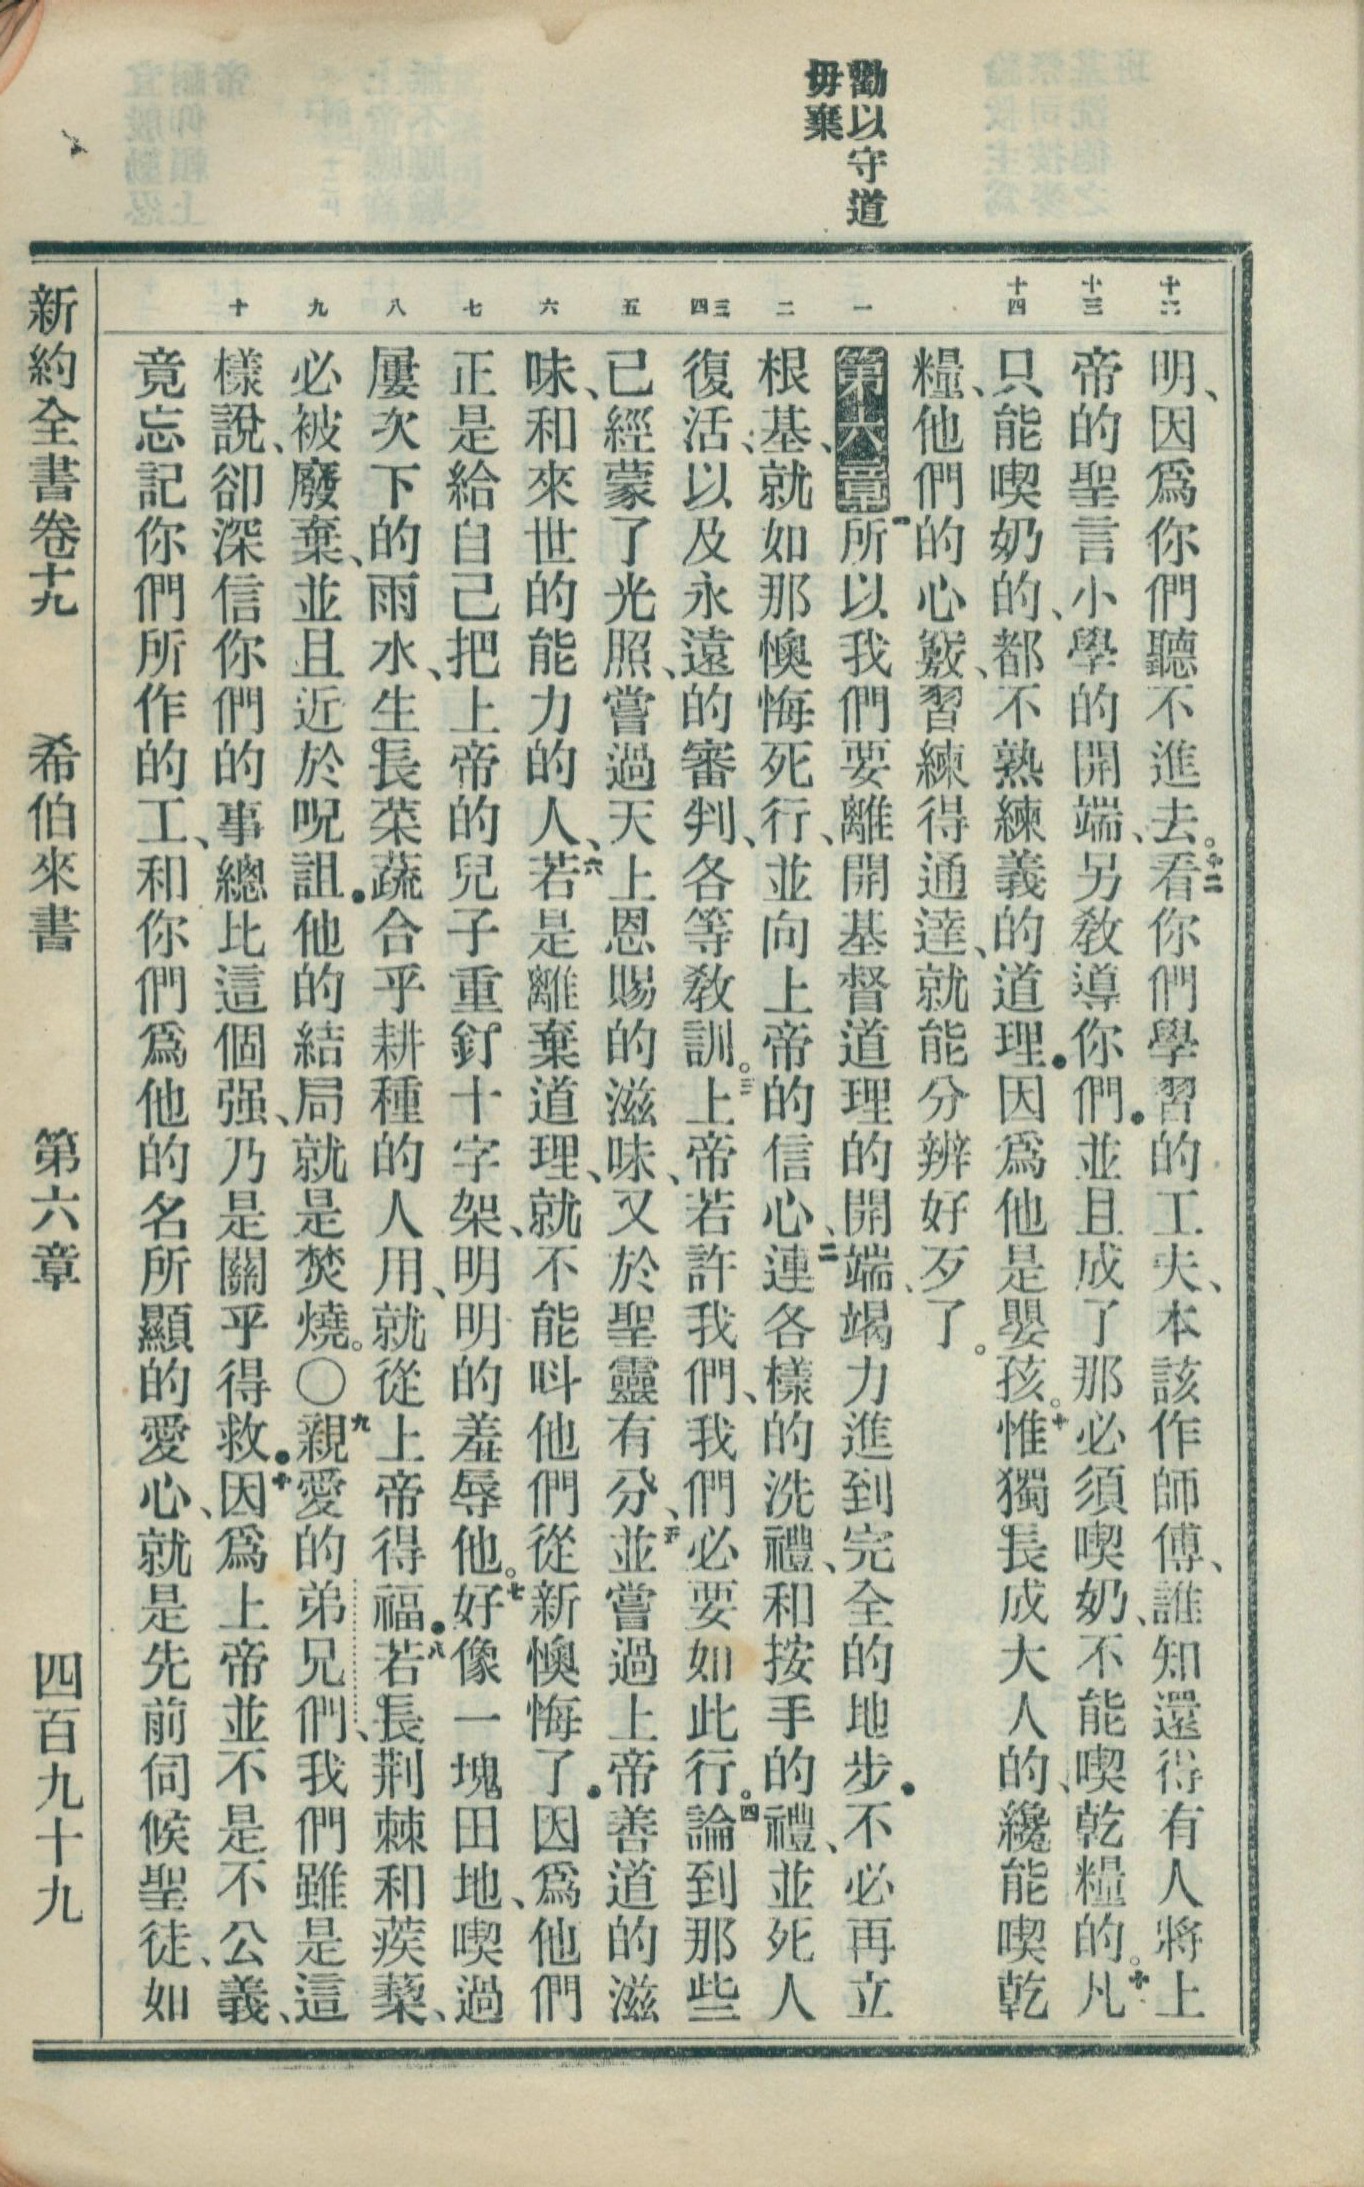 勸以守道
毋棄
十二
十三
十四
一
二
三四
五
六
七
八
九
十
明、因爲你們聽不進去。十二看你們學習的工夫、本該作師傅、誰知還得有人將上
帝的聖言小學的開端、另敎導你們．並且成了那必須喫奶、不能喫乾糧的。十三凡
只能喫奶的、都不熟練義的道理．因爲他是嬰孩。十四惟獨長成大人的、纔能喫乾
糧、他們的心竅、習練得通達、就能分辨好歹了。
第六章一所以我們要離開基督道理的開端、竭力進到完全的地步．不必再立
根基、就如那懊悔死行、並向上帝的信心、二連各樣的洗禮、和按手的禮、並死人
復活、以及永遠的審判、各等敎訓。三上帝若許我們、我們必要如此行。四論到那些
已經蒙了光照、嘗過天上恩賜的滋味、又於聖靈有分、五並嘗過上帝善道的滋
味、和來世的能力的人、六若是離棄道理、就不能呌他們從新懊悔了．因爲他們
正是給自己把上帝的兒子重釘十字架、明明的羞辱他。七好像一塊田地、喫過
屢次下的雨水、生長菜蔬合乎耕種的人用、就從上帝得福．八若長荆棘和蒺藜、
必被廢棄、並且近於呪詛．他的結局就是焚燒。〇九親愛的弟兄們、我們雖是這
樣說、卻深信你們的事總比這個强、乃是關乎得救．十因爲上帝並不是不公義、
竟忘記你們所作的工、和你們爲他的名所顯的愛心、就是先前伺候聖徒、如
新約全書卷十九　希伯來書　第六章　四百九十九